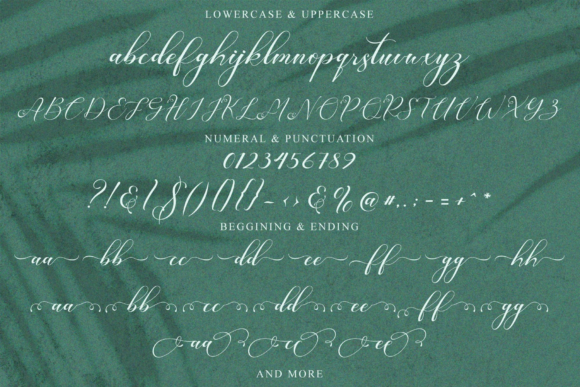 LOWERCASE & UPPERCASE
abcdefghijklmnopqrstuvwxyz
ABCDEFGHIJKLMNOPQRSTUVWXYZ
NUMERAL & PUNCTUATION
0123456789
?!&|$(){}-<>&%@#,.:-=+^*
BEGGINING & ENDING
aa bb cc dd ee ff gg hh
aa bb cc dd ee ff gg
aa cc ee
AND MORE